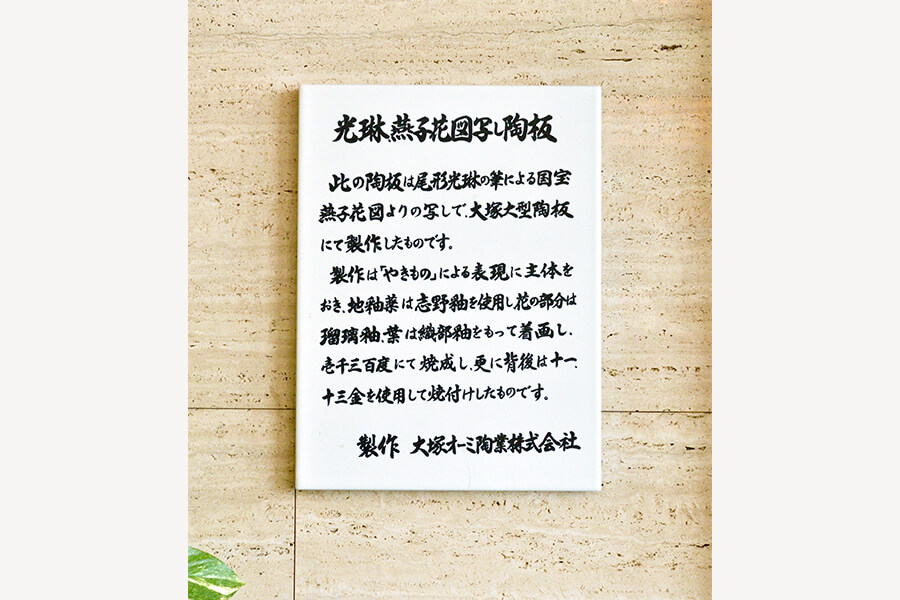 光琳、燕子花図写し陶板
此の陶板は尾形光琳の筆による国宝
燕子花図よりの写しで、大塚大型陶板
にて製作したものです。
製作は「やきもの」による表現に主体を
おき、地釉薬は志野釉を使用し花の部分は
瑠璃釉、葉は織部釉をもって着画し、
壱千三百度にて焼成し、更に背後は十一、
十三金を使用して焼付けしたものです。
製作 大塚オーミ陶業株式会社